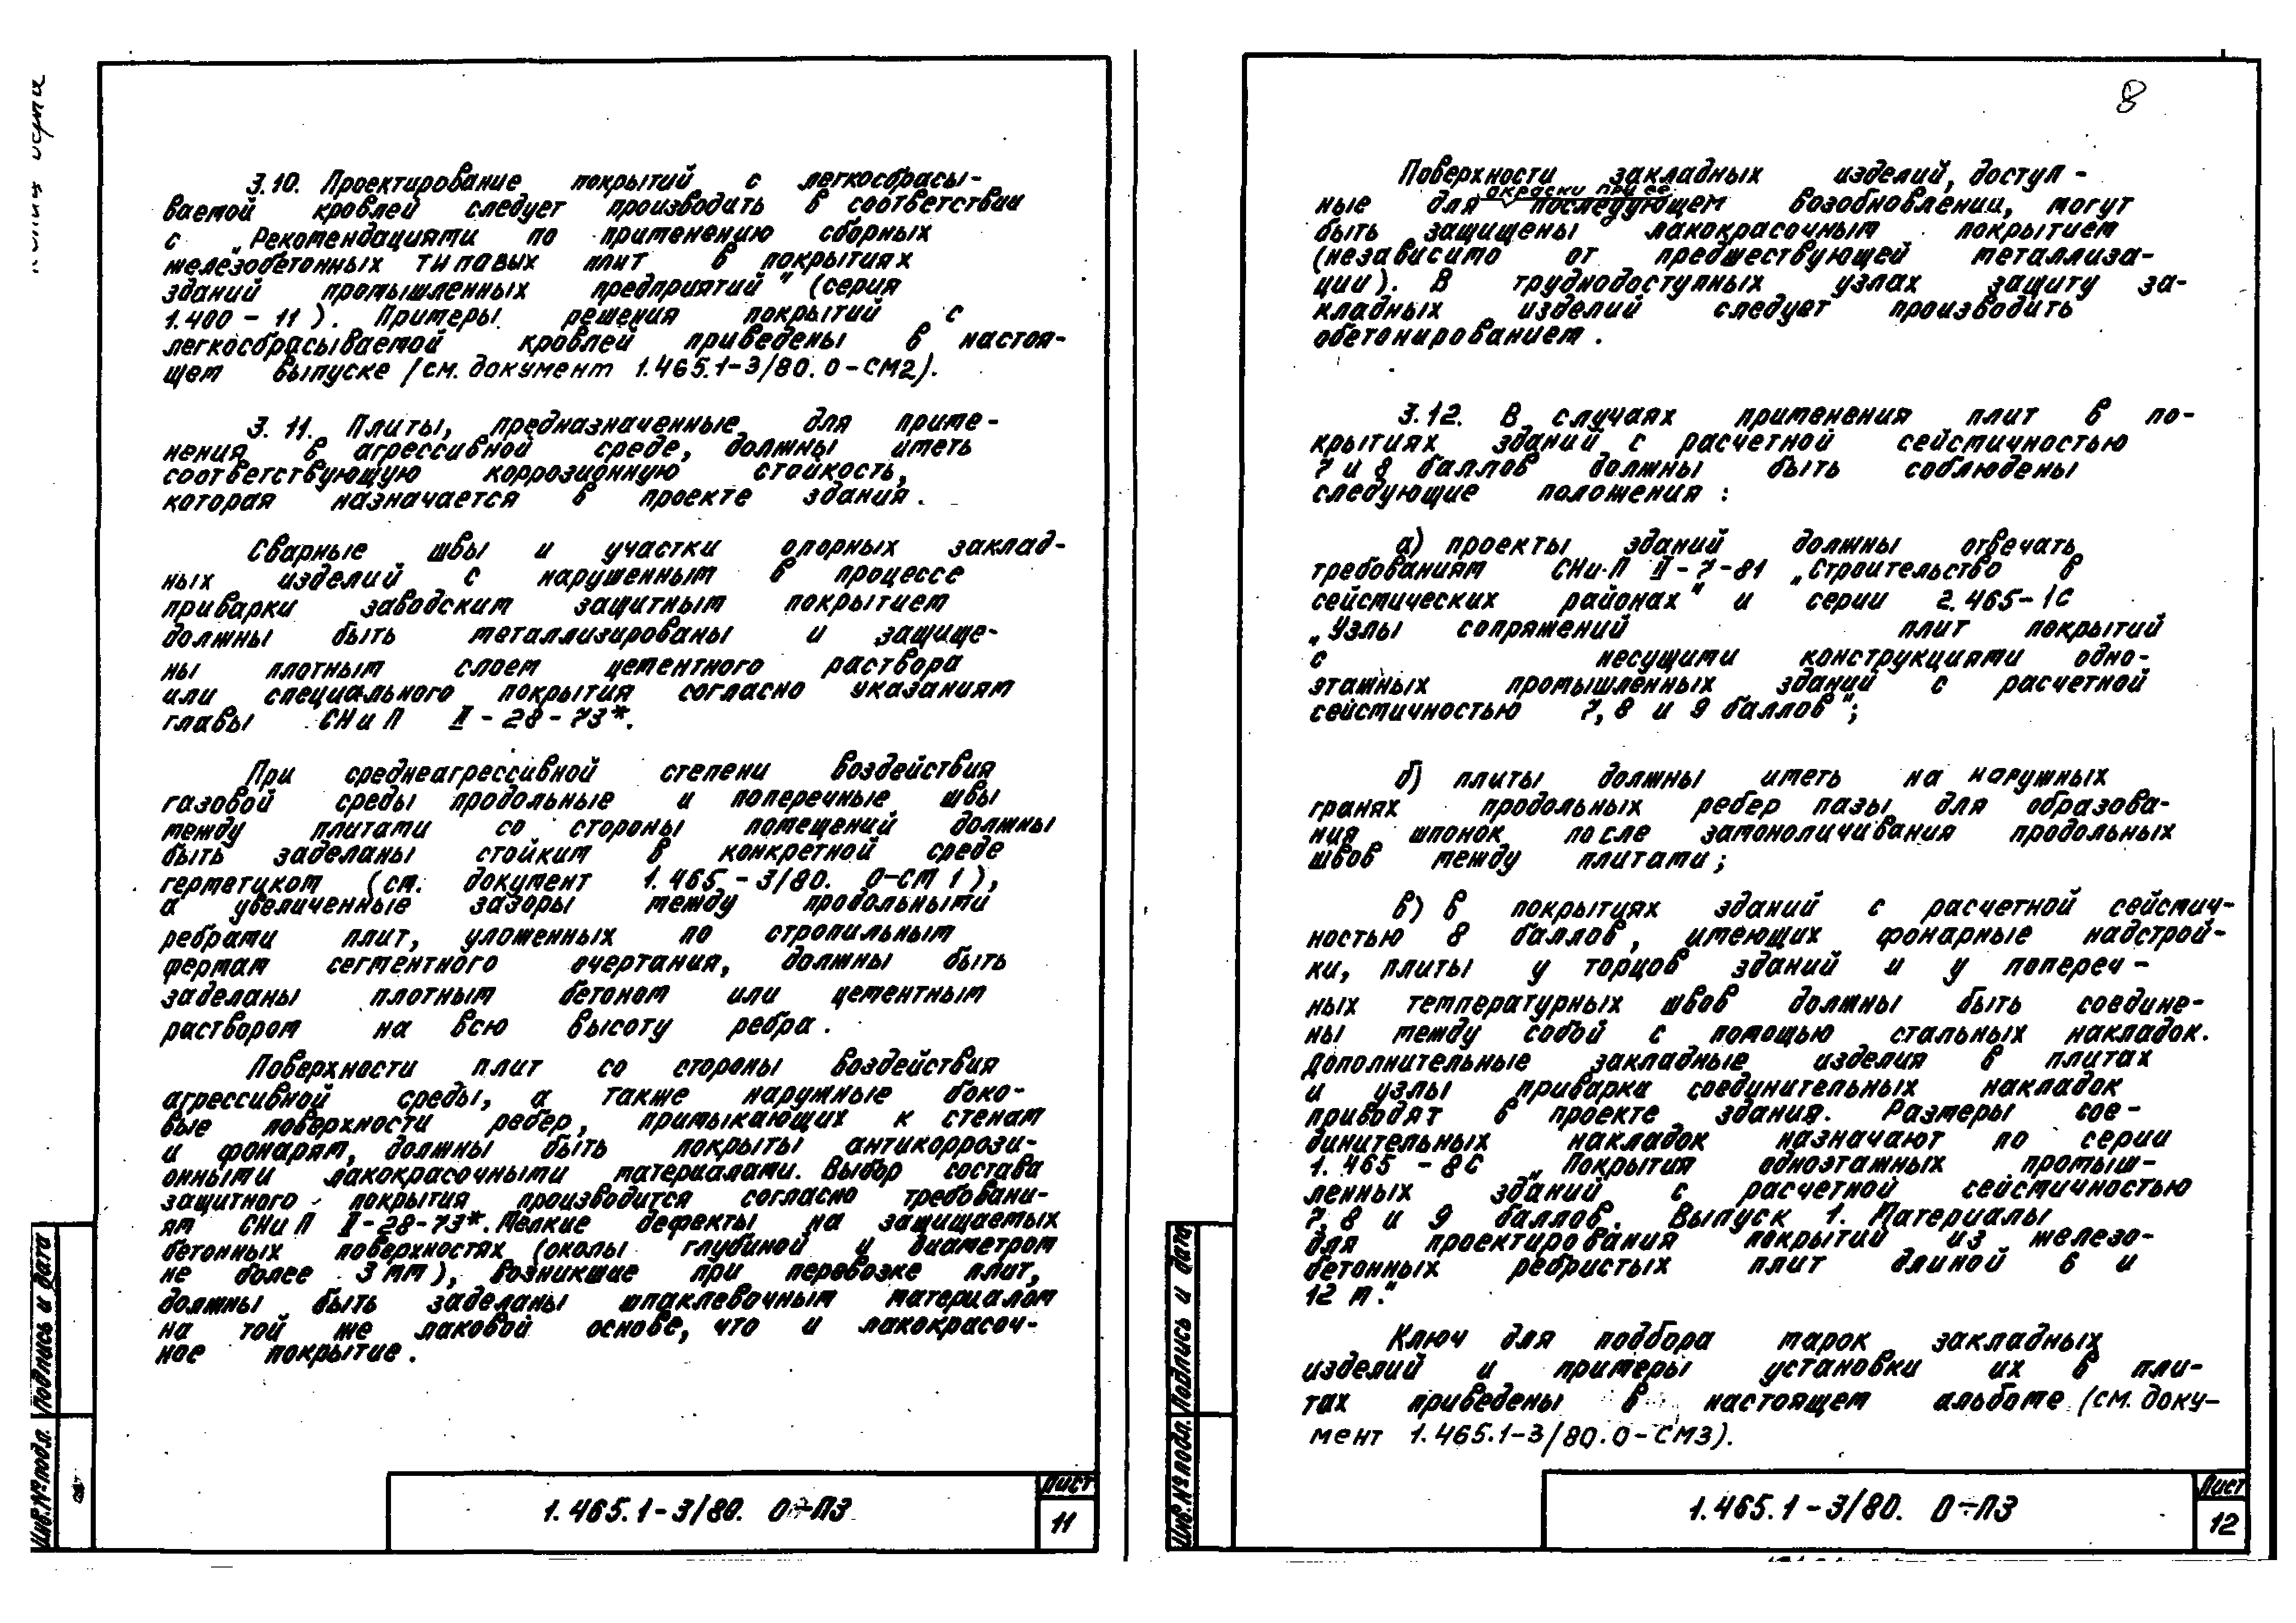 3.10. Проектирование покрытий с легкосбрасы-
ваемой кровлей следует производить в соответствии
с „Рекомендациями по применению сборных
железобетонных типовых плит в покрытиях
зданий промышленных предприятий" (серия
1.400 - 11). Примеры решения покрытий с
легкосбрасываемой кровлей приведены в настоя-
щем выпуске /см. документ 1.465.1-3/80. 0-СМ2).
3.11. Плиты, предназначенные для приме-
нения в агрессивной среде, должны иметь
соответствующую коррозионную стойкость,
которая назначается в проекте здания.
Сварные швы и участки опорных заклад-
ных изделий с нарушенным в процессе
приварки заводским защитным покрытием
должны быть металлизированы и защище-
ны плотным слоем цементного раствора
или специального покрытия согласно указаниям
главы СНиП II-28-73*.
При среднеагрессивной степени воздействия
газовой среды продольные и поперечные швы
между плитами со стороны помещений должны
быть заделаны стойким в конкретной среде
герметиком (см. документ 1.465-3/80. 0-СМ1),
а увеличенные зазоры между продольными
ребрами плит, уложенных по стропильным
фермам сегментного очертания, должны быть
заделаны плотным бетоном или цементным
раствором на всю высоту ребра.
Поверхности плит со стороны воздействия
агрессивной среды, а также наружные боко-
вые поверхности ребер, примыкающих к стенам
и фонарям, должны быть покрыты антикоррози-
онными лакокрасочными материалами. Выбор состава
защитного покрытия производится согласно требовани-
ям СНиП II-28-73*. Мелкие дефекты на защищаемых
бетонных поверхностях (околы глубиной и диаметром
не более 3 мм), возникшие при перевозке плит,
должны быть заделаны шпаклевочным материалом
на той же лаковой основе, что и лакокрасоч-
ное покрытие.
Подпись и дата
Инв.№подл.
1.465.1-3/80. 0-ПЗ
Лист
11
8
Поверхности закладных изделий, доступ-
окраски при ее
ные для последующем возобновлении, могут
быть защищены лакокрасочным покрытием
(независимо от предшествующей металлиза-
ции). В труднодоступных узлах защиту за-
кладных изделий следует производить
обетонированием.
3.12. В случаях применения плит в по-
крытиях зданий с расчетной сейсмичностью
7 и 8 баллов должны быть соблюдены
следующие положения:
а) проекты зданий должны отвечать
требованиям СНиП II-7-81 „Строительство в
сейсмических районах" и серии 2.465-1с
„Узлы сопряжений плит покрытий
с несущими конструкциями одно-
этажных промышленных зданий с расчетной
сейсмичностью 7, 8 и 9 баллов";
б) плиты должны иметь на наружных
гранях продольных ребер пазы для образова-
ния шпонок после замоноличивания продольных
швов между плитами;
в) в покрытиях зданий с расчетной сейсмич-
ностью 8 баллов, имеющих фонарные надстрой-
ки, плиты у торцов зданий и у попереч-
ных температурных швов должны быть соедине-
ны между собой с помощью стальных накладок.
Дополнительные закладные изделия в плитах
и узлы приварка соединительных накладок
приводят в проекте здания. Размеры сое-
динительных накладок назначают по серии
1.465-8с „Покрытия одноэтажных промыш-
ленных зданий с расчетной сейсмичностью
7, 8 и 9 баллов. Выпуск 1. Материалы
для проектирования покрытий из железо-
бетонных ребристых плит длиной 6 и
12 м."
Ключ для подбора марок закладных
изделий и примеры установки их в пли-
тах приведены в настоящем альбоме (см. доку-
мент 1.465.1-3/80.0-СМ3).
Подпись и дата
Инв.№подл.
1.465.1-3/80. 0-ПЗ
Лист
12